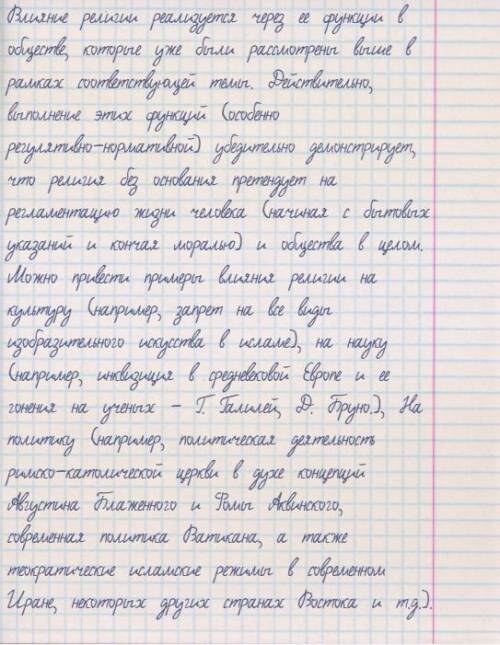 Влияние религии реализуется через ее функции в
обществе, которые уже были рассмотрены выше в
рамках соответствующей темы. Действительно,
выполнение этих функций (особенно
регулятивно-нормативной) убедительно демонстрирует,
что религия без основания претендует на
регламентацию жизни человека (начиная с бытовых
указаний и кончая моралью) и общества в целом.
Можно привести примеры влияния религии на
культуру (например, запрет на все виды
изобразительного искусства в исламе), на науку
(например, инквизиция в средневековой Европе и ее
гонения на ученых - Г. Галилей, Д. Бруно.), На
политику (например, политическая деятельность
римско-католической церкви в духе концепций
Августина Блаженного и Фомы Аквинского,
современная политика Ватикана, а также
теократические исламские режимы в современном
Иране, некоторых других странах Востока и т.д.).